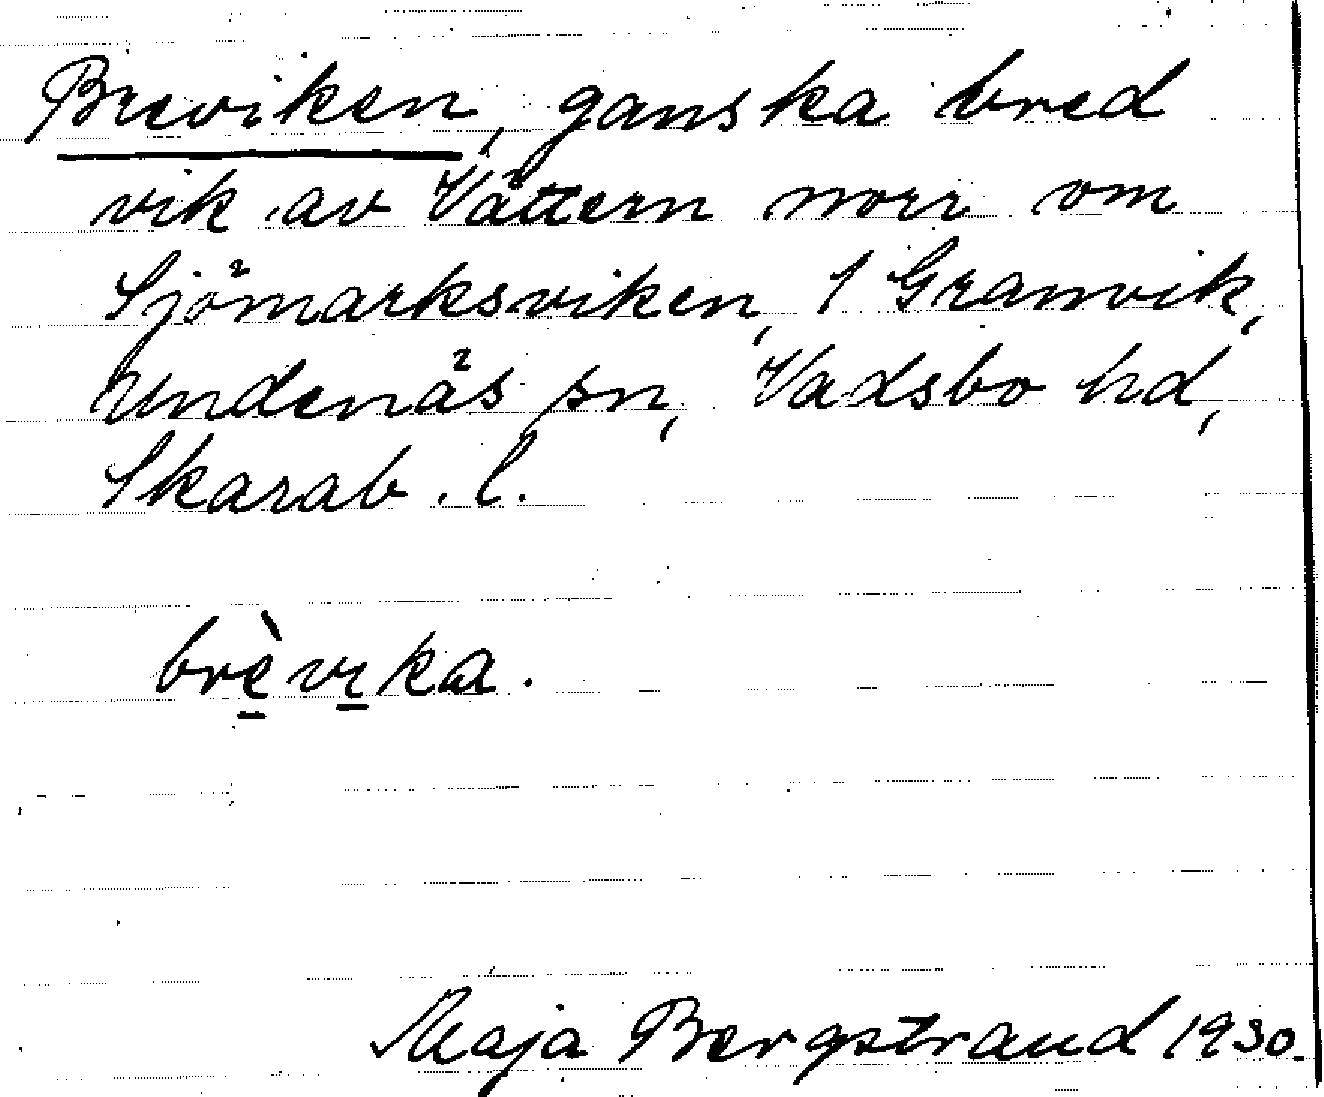 Breviken, ganska bred
vik av Vättern norr om
Sjömarksviken, 1 Granvik,
Undenäs sn, Vadsbo hd,
Skarab. l.
brè̱vi̱ka.
Maja Bergstrand 1930.